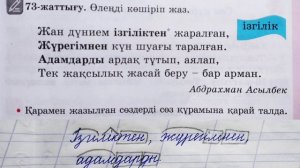 73-жаттығу. Өлеңді көшіріп жаз.
Жан дүнием ізгіліктен* жаралған,
ізгілік
Жүрегімнен күн шуағы таралған.
Адамдарды ардақ тұтып, аялап,
Тек жақсылық жасай беру – бар арман.
Абдрахман Асылбек
• Қарамен жазылған сөздерді сөз құрамына қарай талда.
Ізгіліктен, жүрегімнен,
адамдарды